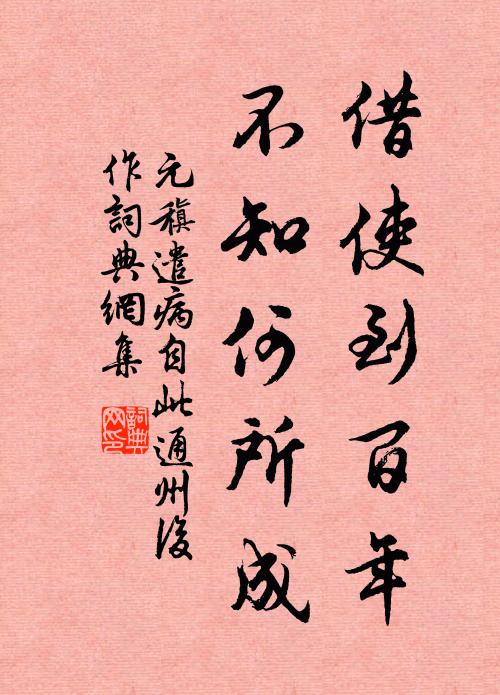 借使到百年
不知何所成
元稹遣病自此通州後
作詞典網集
詞典网印